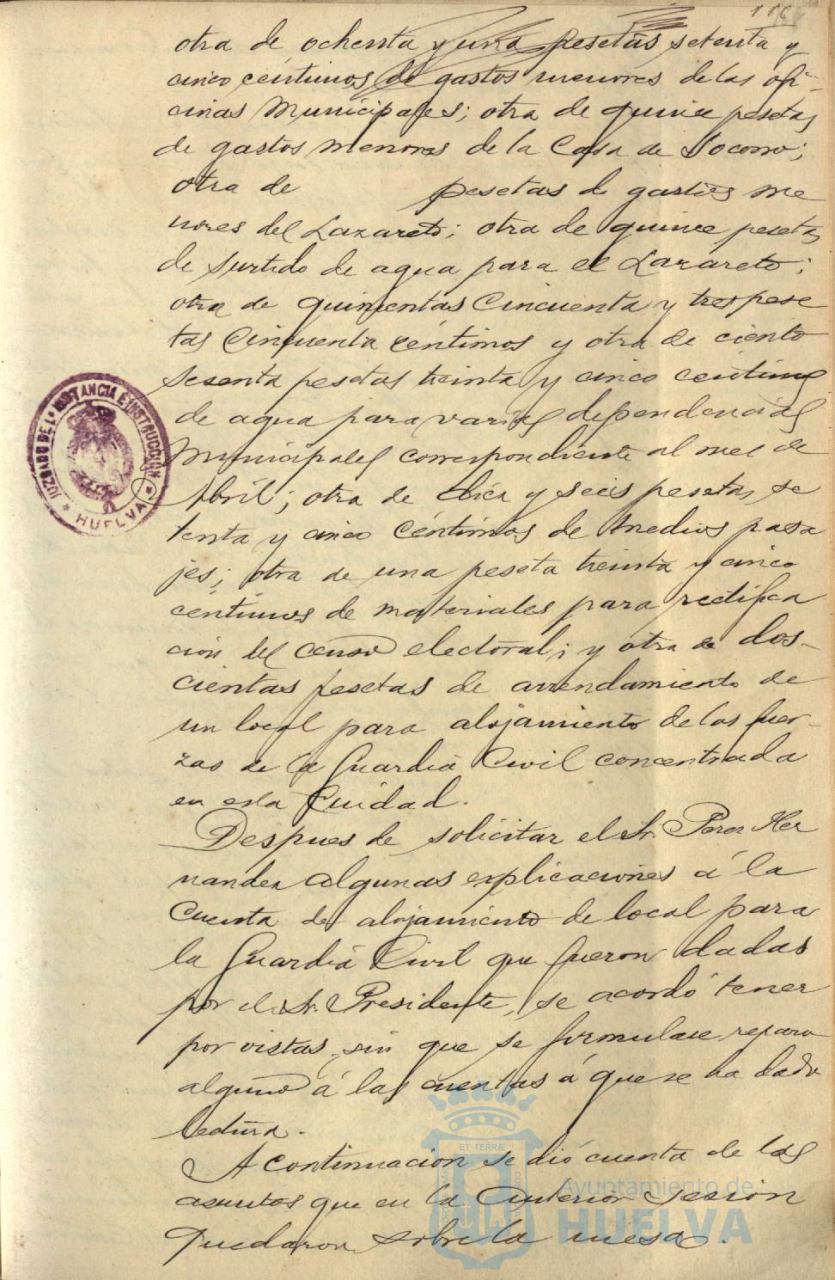 116
otra de ochenta y una pesetas setenta y
cinco céntimos de gastos menores de las ofi-
cinas Municipales; otra de quince pesetas
de gastos menores de la Casa de Socorro;
otra de pesetas de gastos me
nores del Lazareto; otra de quince pesetas
de surtido de agua para el Lazareto;
otra de quinientas cincuenta y tres pese
tas cincuenta céntimos y otra de ciento
sesenta pesetas treinta y cinco céntimos
de agua para varias dependencias
Municipales correspondiente al mes de
Abril; otra de y seis pesetas se
tenta y cinco céntimos de medios pasa
jes; otra de una peseta treinta y cinco
céntimos de materiales para rectifica
ción del censo electoral; y otra de dos-
cientas pesetas de arrendamiento de
un local para alojamiento de las fuer-
zas de la Guardia Civil concentrada
en esta Ciudad.
Despues de solicitar el Sr. Perez Her
nandez algunas explicaciones á la
cuenta de alojamiento de local para
la Guardia Civil que fueron dadas
por el Sr. Presidente, se acordó tener
por vistas, sin que se formulase reparo
alguno á las cuentas á que se ha dado
lectura.
A continuacion se dió cuenta de los
asuntos que en la anterior sesion
quedaron sobre la mesa.
JUZGADO DE 1ª INSTANCIA E INSTRUCCIÓN
* HUELVA *
ET TERRÆ
Ayuntamiento de
HUELVA